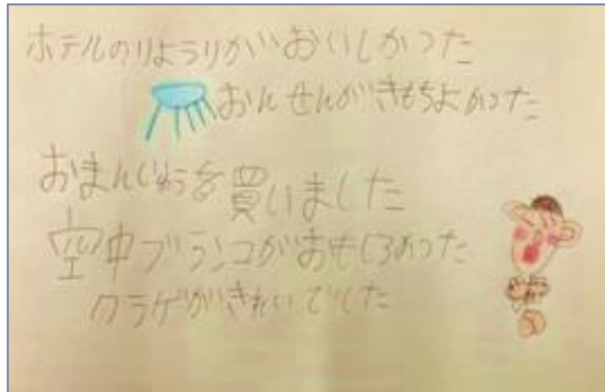 ホテルのりようりがおいしかつた
おんせんがきもちよかつた
おまんじゅうを買いました
空中ブランコがおもしろかった
クラゲがきれいでした